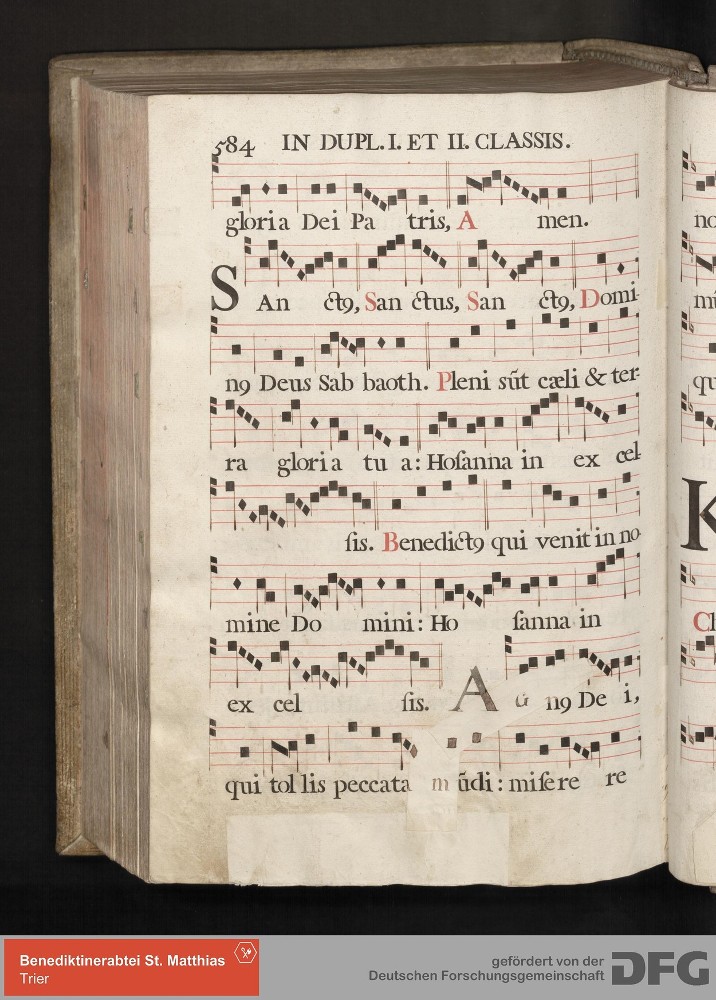 584 IN DUPL. I. ET II. CLASSIS.
gloria Dei Pa tris, A men.
SAn ctꝯ, San ctus, San ctꝯ, Domi-
nꝯ Deus Sab baoth. Pleni sũt cæli & ter-
ra gloria tu a: Hoſanna in ex cel-
ſis. Benedictꝯ qui venit in no-
mine Do mini: Ho ſanna in
ex cel ſis. A nꝯ De i,
qui tol lis peccata m ũdi: miſere re
no
qu
K
Benediktinerabtei St. Matthias
Trier
gefördert von der
Deutschen Forschungsgemeinschaft
DFG